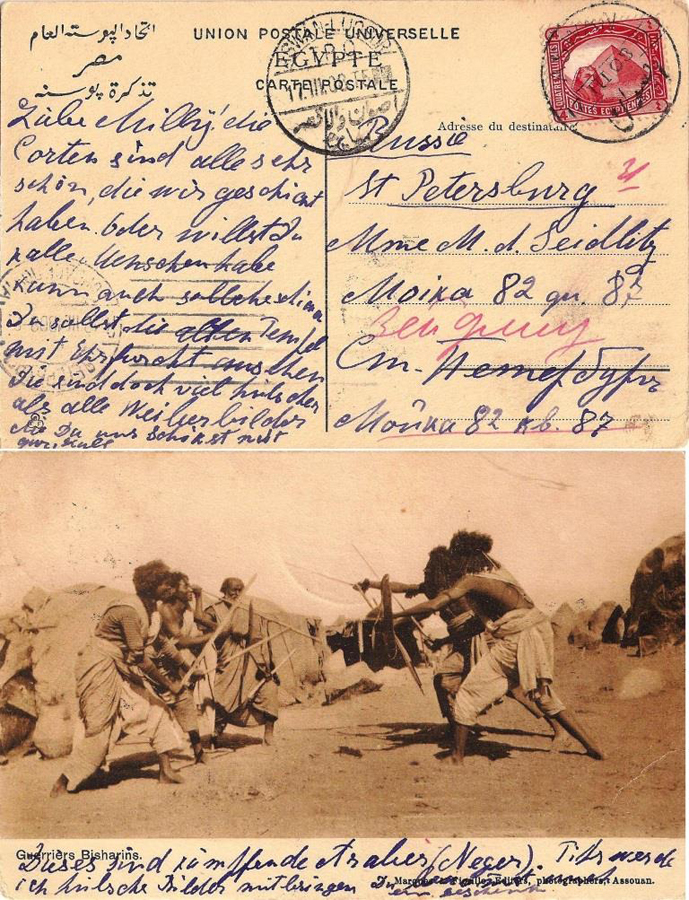 اتحاد البوسته العام
مصر
تذكرة بوسته
UNION POSTALE UNIVERSELLE
EGYPTE
CARTE POSTALE
Adresse du destinataire
17 III 08
اصوان والاقصر
QUATRE MILLIEMES
POSTES EGYPTIENNES
Liebe Milly! die
Corten sind alle sehr
schön, die wir geschickt
haben oder willst Du
kalle Menschen habe
kann auch sollche
Du sollst die alten Tempel
mit Ehrfurcht ansehen
Sie sind doch viel hübscher
als alle Weiberbilder
die Du uns schikst
Russie
St Petersburg
Mme M. d. Seidlitz
Моика 82 qu. 87
Ст. Петербургъ
Мойка 82 кв. 87
Guerriers Bisharins.
Dieses sind kämpfende Araber (Neger).
ich hübsche Bilder mitbringen
Editeurs, photographers, Assouan.